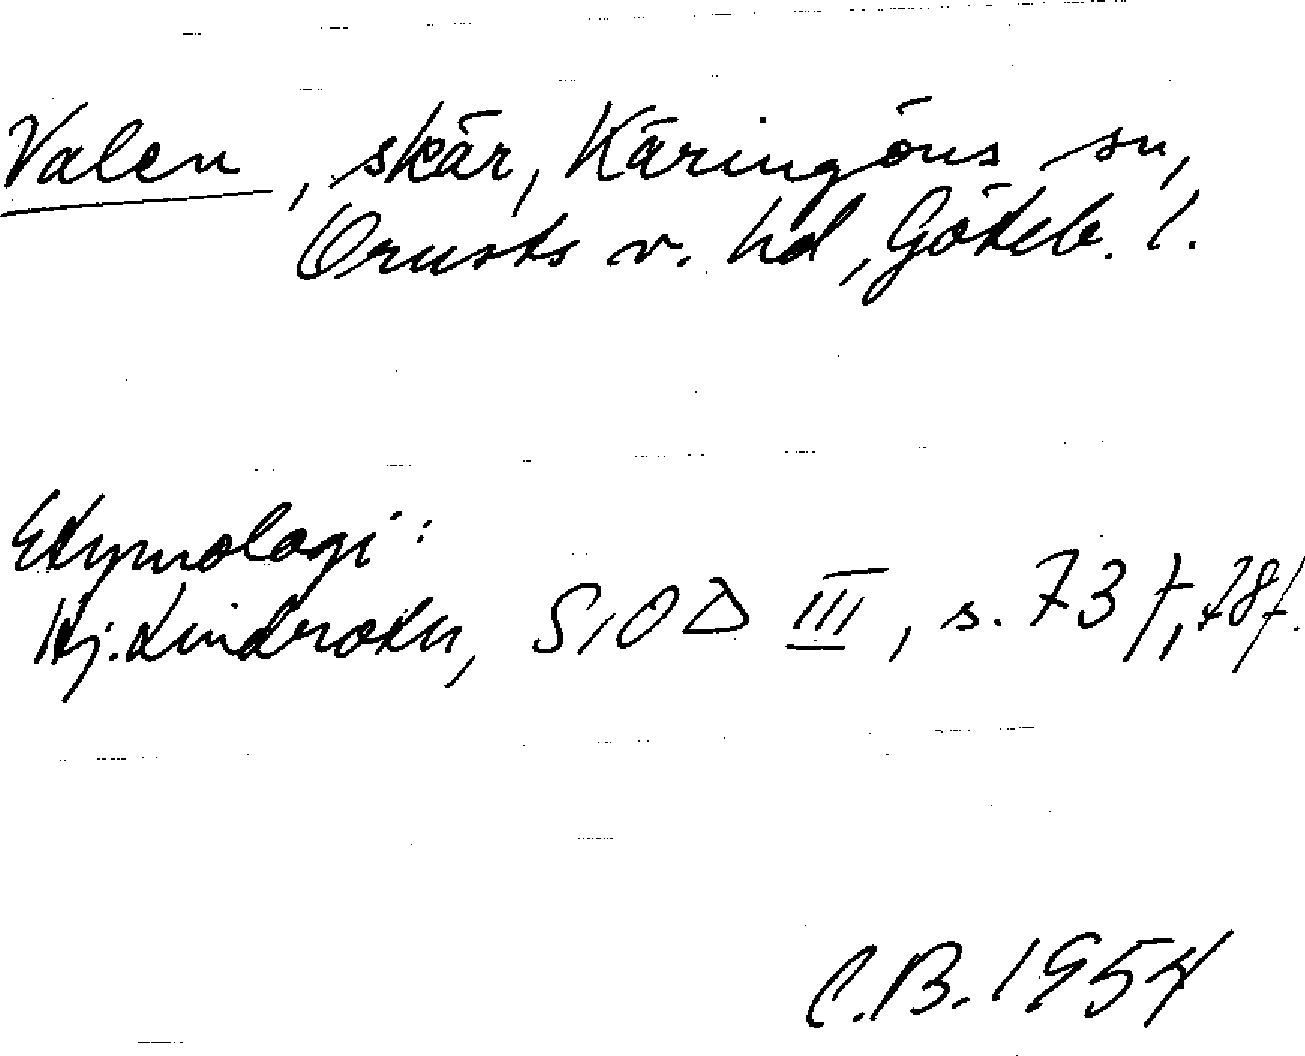 Valen, skär, Käringöns sn,
Orusts v. hd, Göteb. l.
Etymologi:
Hj. Lindroth, SIOD III, s. 73 f, 78f.
C.B. 1954